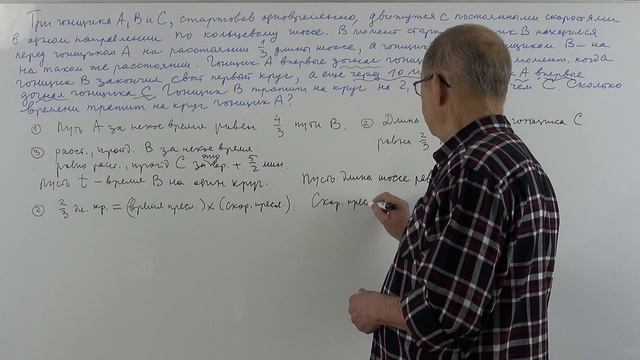 Три гонщика A, B и C, стартовав одновременно, движутся с постоянными скоростями
в одном направлении по кольцевому шоссе. В момент старта гонщик B находился
перед гонщиком A на расстоянии 1/3 длины шоссе, а гонщик B – на
на таком же расстоянии. Гонщик A впервые догнал гонщика момент, когда
гонщик B закончил свой первый круг, а ещё через 10 м A впервые
догнал гонщика C. Гонщик B тратит на круг на 2, чем C. Сколько
времени тратит на круг гонщик A?
① Путь A за некое время равен 4/3 пути B. ② Длина гонщика C
равна 2/3
③ расст., пройд. B за некое время
равно расс., пройд C за это вр. + 5/2 мин.
Пусть t – время B на один круг. Пусть длина шоссе рав
② 2/3 дл. кр. = (время пресл.) × (скор. пресл.). Скор. прес